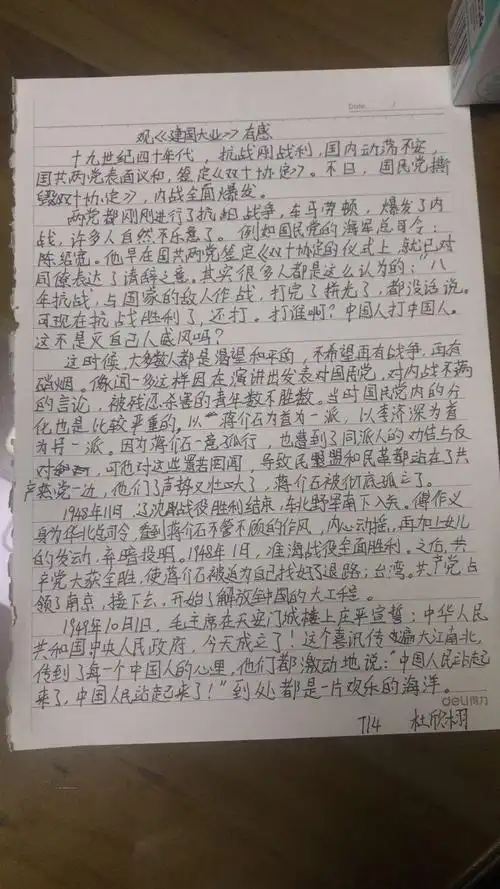 Date: /
观《建国大业》有感
十九世纪四十年代，抗战刚战利，国内动荡不安，
国共两党表面议和，签定《双十协定》。不日，国民党撕
毁《双十协定》，内战全面爆发。
两党都刚刚进行了抗日战争，车马劳顿，爆发了内
战，许多人自然不乐意了。例如国民党的海军总司令：
陈绍宽。他早在国共两党签定《双十协定的仪式上，就已对
同僚表达了请辞之意。其实很多人都是这么认为的："八
年抗战，与国家的敌人作战，打完了拼光了，都没话说。
可现在抗战胜利了，还打。打谁啊？中国人打中国人。
这不是灭自己人威风吗？
这时候，大多数人都是渴望和平的，不希望再有战争，再有
硝烟。像闻一多这样因在演讲出发表对国民党，对内战不满
的言论，被残忍杀害的青年数不胜数。当时国民党内的分
化也是比较严重的。以蒋介石为首为一派，以李济深为首
为另一派。因为蒋介石一意孤行，也遭到了同派人的劝告与反
对，可他对这些置若罔闻，导致民盟和民革都站在了共
产党一边，他们了声势又壮大了，蒋介石被彻底孤立了。
1948年11月，辽沈战役胜利结束，东北野军南下入关。傅作义
身为华北总司令，看到蒋介石不管不顾的作风，内心动摇，再加上女儿
的发动，弃暗投明。1948年1月，淮海战役全面胜利。之后，共
产党大获全胜，使蒋介石被迫为自己找好了退路：台湾。共产党占
领了南京，接下去，开始了解放全中国的大工程。
1949年10月1日，毛主席在天安门城楼上庄严宣誓：中华人民
共和国中央人民政府，今天成立了！这个喜讯传遍大江南北，
传到了每一个中国人的心里，他们都激动地说："中国人民站起
来了，中国人民站起来了！"到处都是一片欢乐的海洋。
deli得力
714 杜欣栩